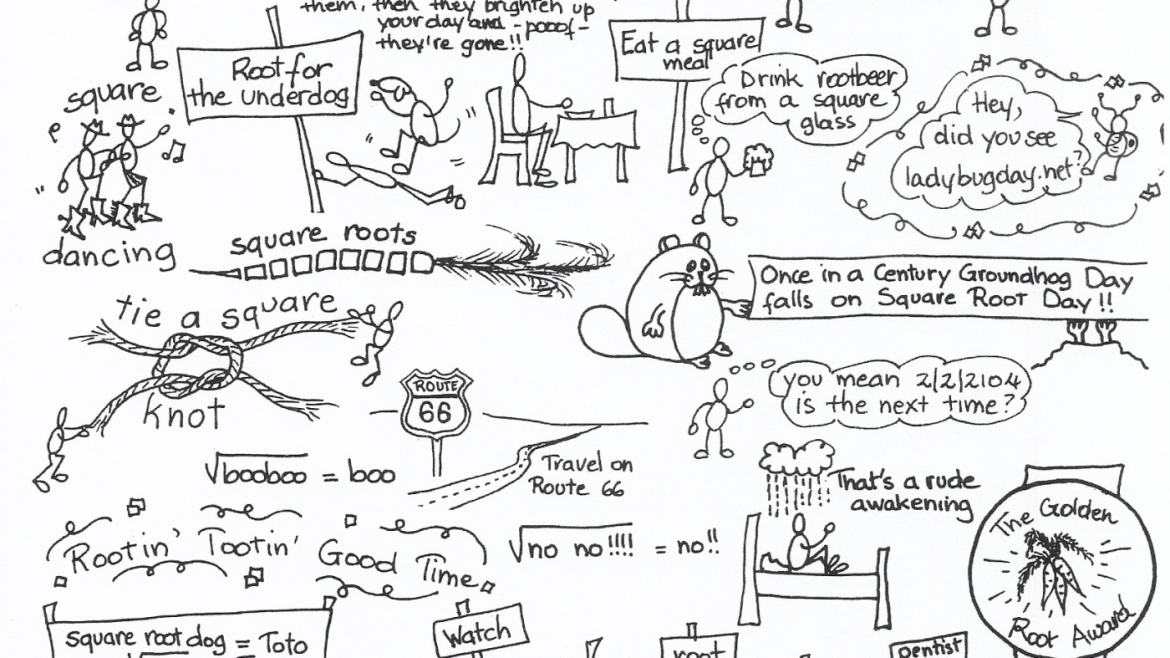 them, then they brighten up
your day and - pooof -
they're gone!!
Root for
the underdog
Eat a square
meal
Drink rootbeer
from a square
glass
Hey,
did you see
ladybugday.net?
square
dancing
square roots
Once in a Century Groundhog Day
falls on Square Root Day!!
tie a square
knot
ROUTE
66
you mean 2/2/2104
is the next time?
√booboo = boo
Travel on
Route 66
That's a rude
awakening
The Golden
Root Award
Rootin' Tootin'
Good Time
√no no!!!! = no!!
square root dog = Toto
Watch
root
Dentist